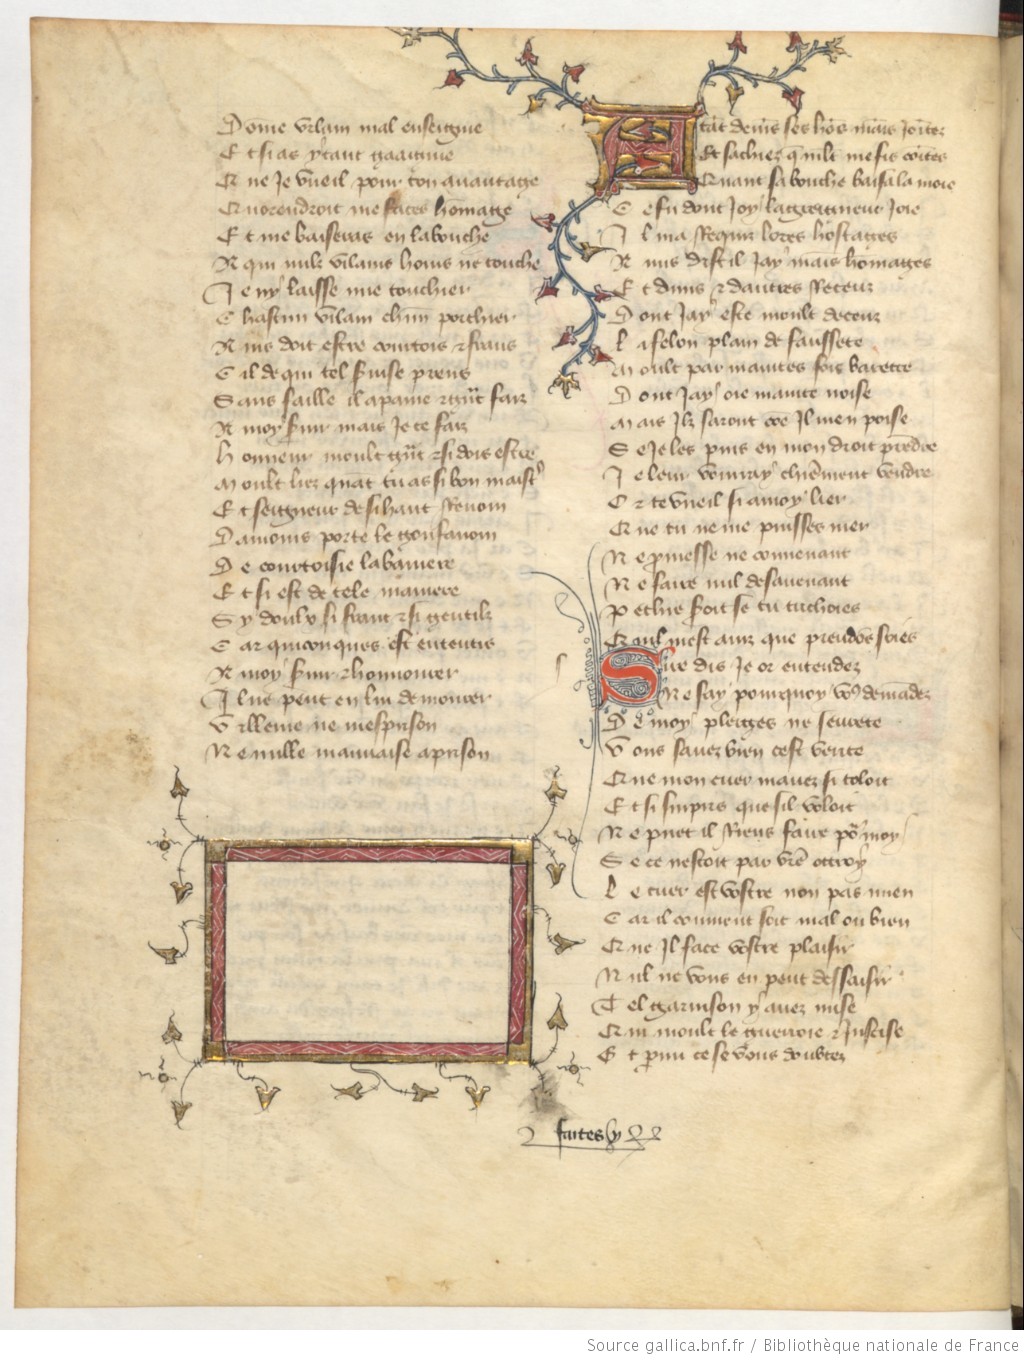 Dome vilain mal enseigne
Et si as ytant gaaingne
Car ie vueil pour ton auantage
Quorendroit me faces hommage
Et me baiseras en la bouche
A qui nulz vilains homs ne touche
Je ny laisse mie touchier
Chascun vilain chun porchier
Ains doit estre courtois et frans
Cil de qui tel seruise prens
Sans faille il a paine et grit faiz
A moy seruir mais Je te faiz
Honneur moult grit et si dois estre
Moult liez quant tu as si bon maistre
Et seigneur de si haut Renom
Damours porte le gonfanom
De courtoisie la baniere
Et si est de tele maniere
Sy doulz si franc et si gentilz
Car quiconques est ententis
A moy seruir et honnourer
Il ne peut en lui demourer
Villenie ne mesprison
Ne nulle mauuaise aprison
Atāt deuins ses hōs mains Jointes
Et sachiez q̄ mlt me fis cointes
Quant sa bouche baisa la moie
Ce fu dont Joy la greigneur Joie
Il ma Requis lores hostages
Amis dist il Jay mains hōmages
Et duns et dautres Receuz
Dont Jay este moult deceuz
La felon plain de faussete
Moult par maintes fois barette
Dont Jay oie mainte noise
Mais Ilz saront cōe Il men poise
Se Je les puis en mon droit prēdre
Je leur vouuray chieremēt vendre
Or te vueil si a moy lier
Que tu ne me puisses nier
Ne pmesse ne conuenant
Ne faire nul desauenant
Pechie seroit se tu trichoies
Quil mest auiz que preudōs soies
Sire dis Je or entendez
Ne say pourquoy vo9 demādez
De moy pleiges ne seurete
Vous sauez bien cest verite
Que mon cuer mauez si toloit
Et si surpris que sil vouloit
Ne puet il Riens faire po9 moy
Se ce nestoit par vre ottroy
Le cuer est vostre non pas mien
Car il conuient soit mal ou bien
Que Il face vostre plaisir
Nul ne vous en peut dessaisir
Tel garnison y auez mise
Qui moult le guerroie et Justise
Et sur tout ce se vous doubtez
faites y
Source gallica.bnf.fr / Bibliothèque nationale de France